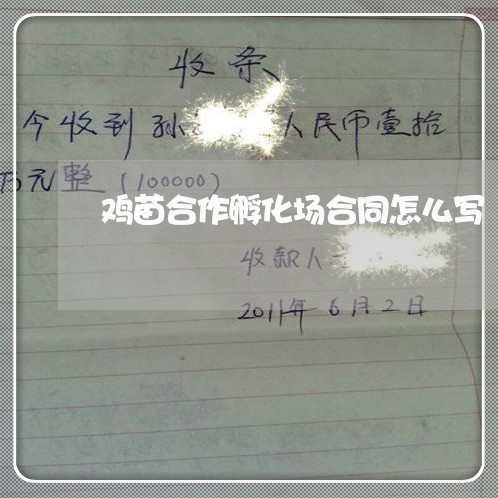 收条
今收到孙 人民币壹拾
万元整(100000)
鸡苗合作孵化场合同怎么写
收款人
2011年6月2日